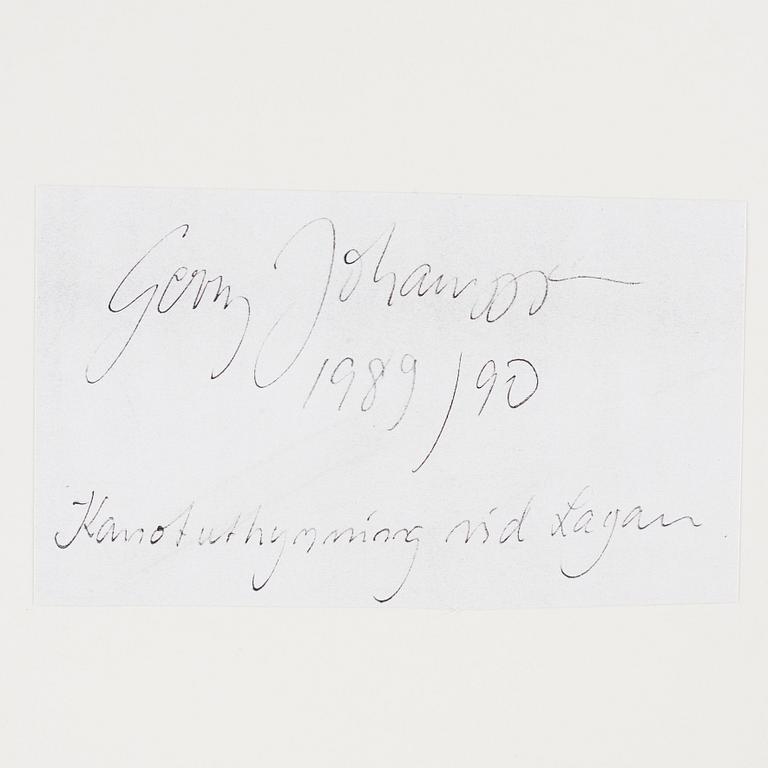 Gerry Johansson
1989/90
Kanotuthyrning vid Lagan